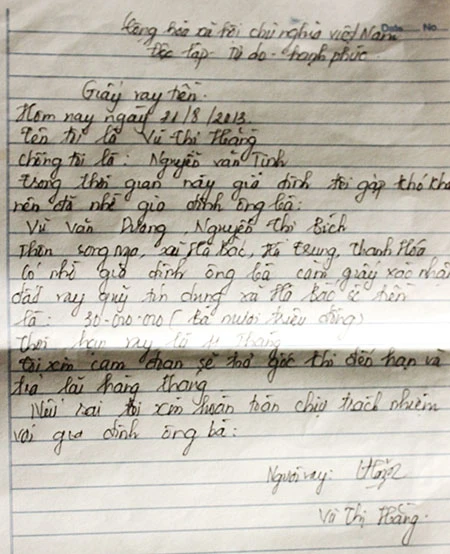 Cộng hòa xã hội chủ nghĩa việt Nam
Date No
Độc lập - Tự do - hạnh phúc
Giấy vay tiền.
Hôm nay ngày 21/8/2013.
Tên tôi là Vũ Thị Hằng
Chồng tôi là: Nguyễn văn Tình
trong thời gian này gia đình tôi gặp khó kh
nên đã nhờ gia đình ông bà:
Vũ Văn Dương, Nguyễn Thị Bích
Thôn song nga, xã Hà Bắc, Hà Trung, Thanh Hóa
Có nhờ gia đình ông bà cầm giấy xác nhận
đất vay quỹ tín dụng xã Hà Bắc số tiền
là: 30.000.000 (ba mươi triệu đồng)
Thời hạn vay là tháng
tôi xin cam đoan sẽ trả gốc khi đến hạn và
trả lãi hàng tháng
Nếu sai tôi xin hoàn toàn chịu trách nhiệm
với gia đình ông bà:
Người vay: Hằng
Vũ Thị Hằng.